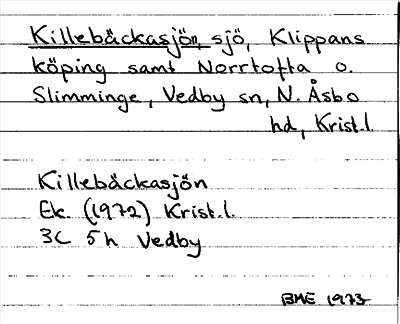 Killebäckasjön, sjö, Klippans
köping samt Norrtofta o.
Slimminge, Vedby sn, N. Åsbo
hd, Krist.l.
Killebäckasjön
Ek. (1972) Krist.l.
3C 5h Vedby
BME 1973